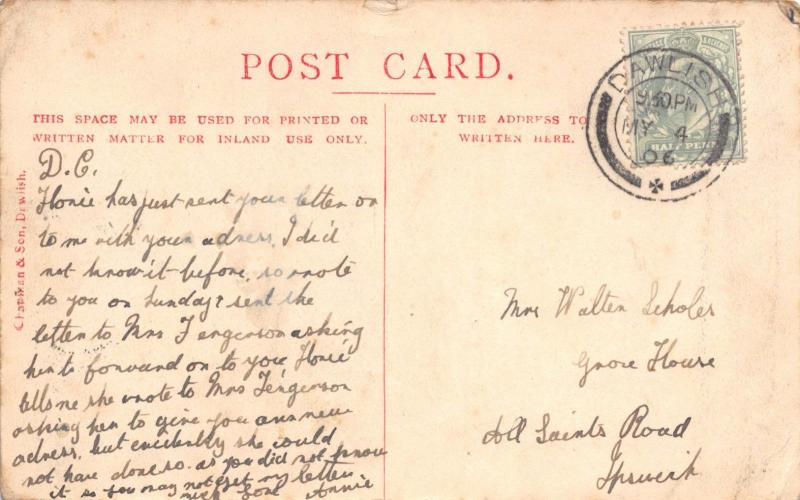 POST CARD.
THIS SPACE MAY BE USED FOR PRINTED OR
WRITTEN MATTER FOR INLAND USE ONLY.
ONLY THE ADDRESS TO
WRITTEN HERE.
DAWLISH
9.30PM
MY 4
06
HALF PENNY
Chapman & Son, Dawlish.
D.C.
Florie has just sent your letter on
to me with your adress, I did
not know it before, so wrote
to you on Sunday & sent the
letter to Mrs Fergerson asking
her to forward on to you Florie
tells me she wrote to Mrs Fergerson
asking her to give you our new
adress, but evidently she could
not have done so. as you did not know
it so you may not get my letter
with love Annie
Mrs Walter Scholes
Grove House
All Saints Road
Ipswich